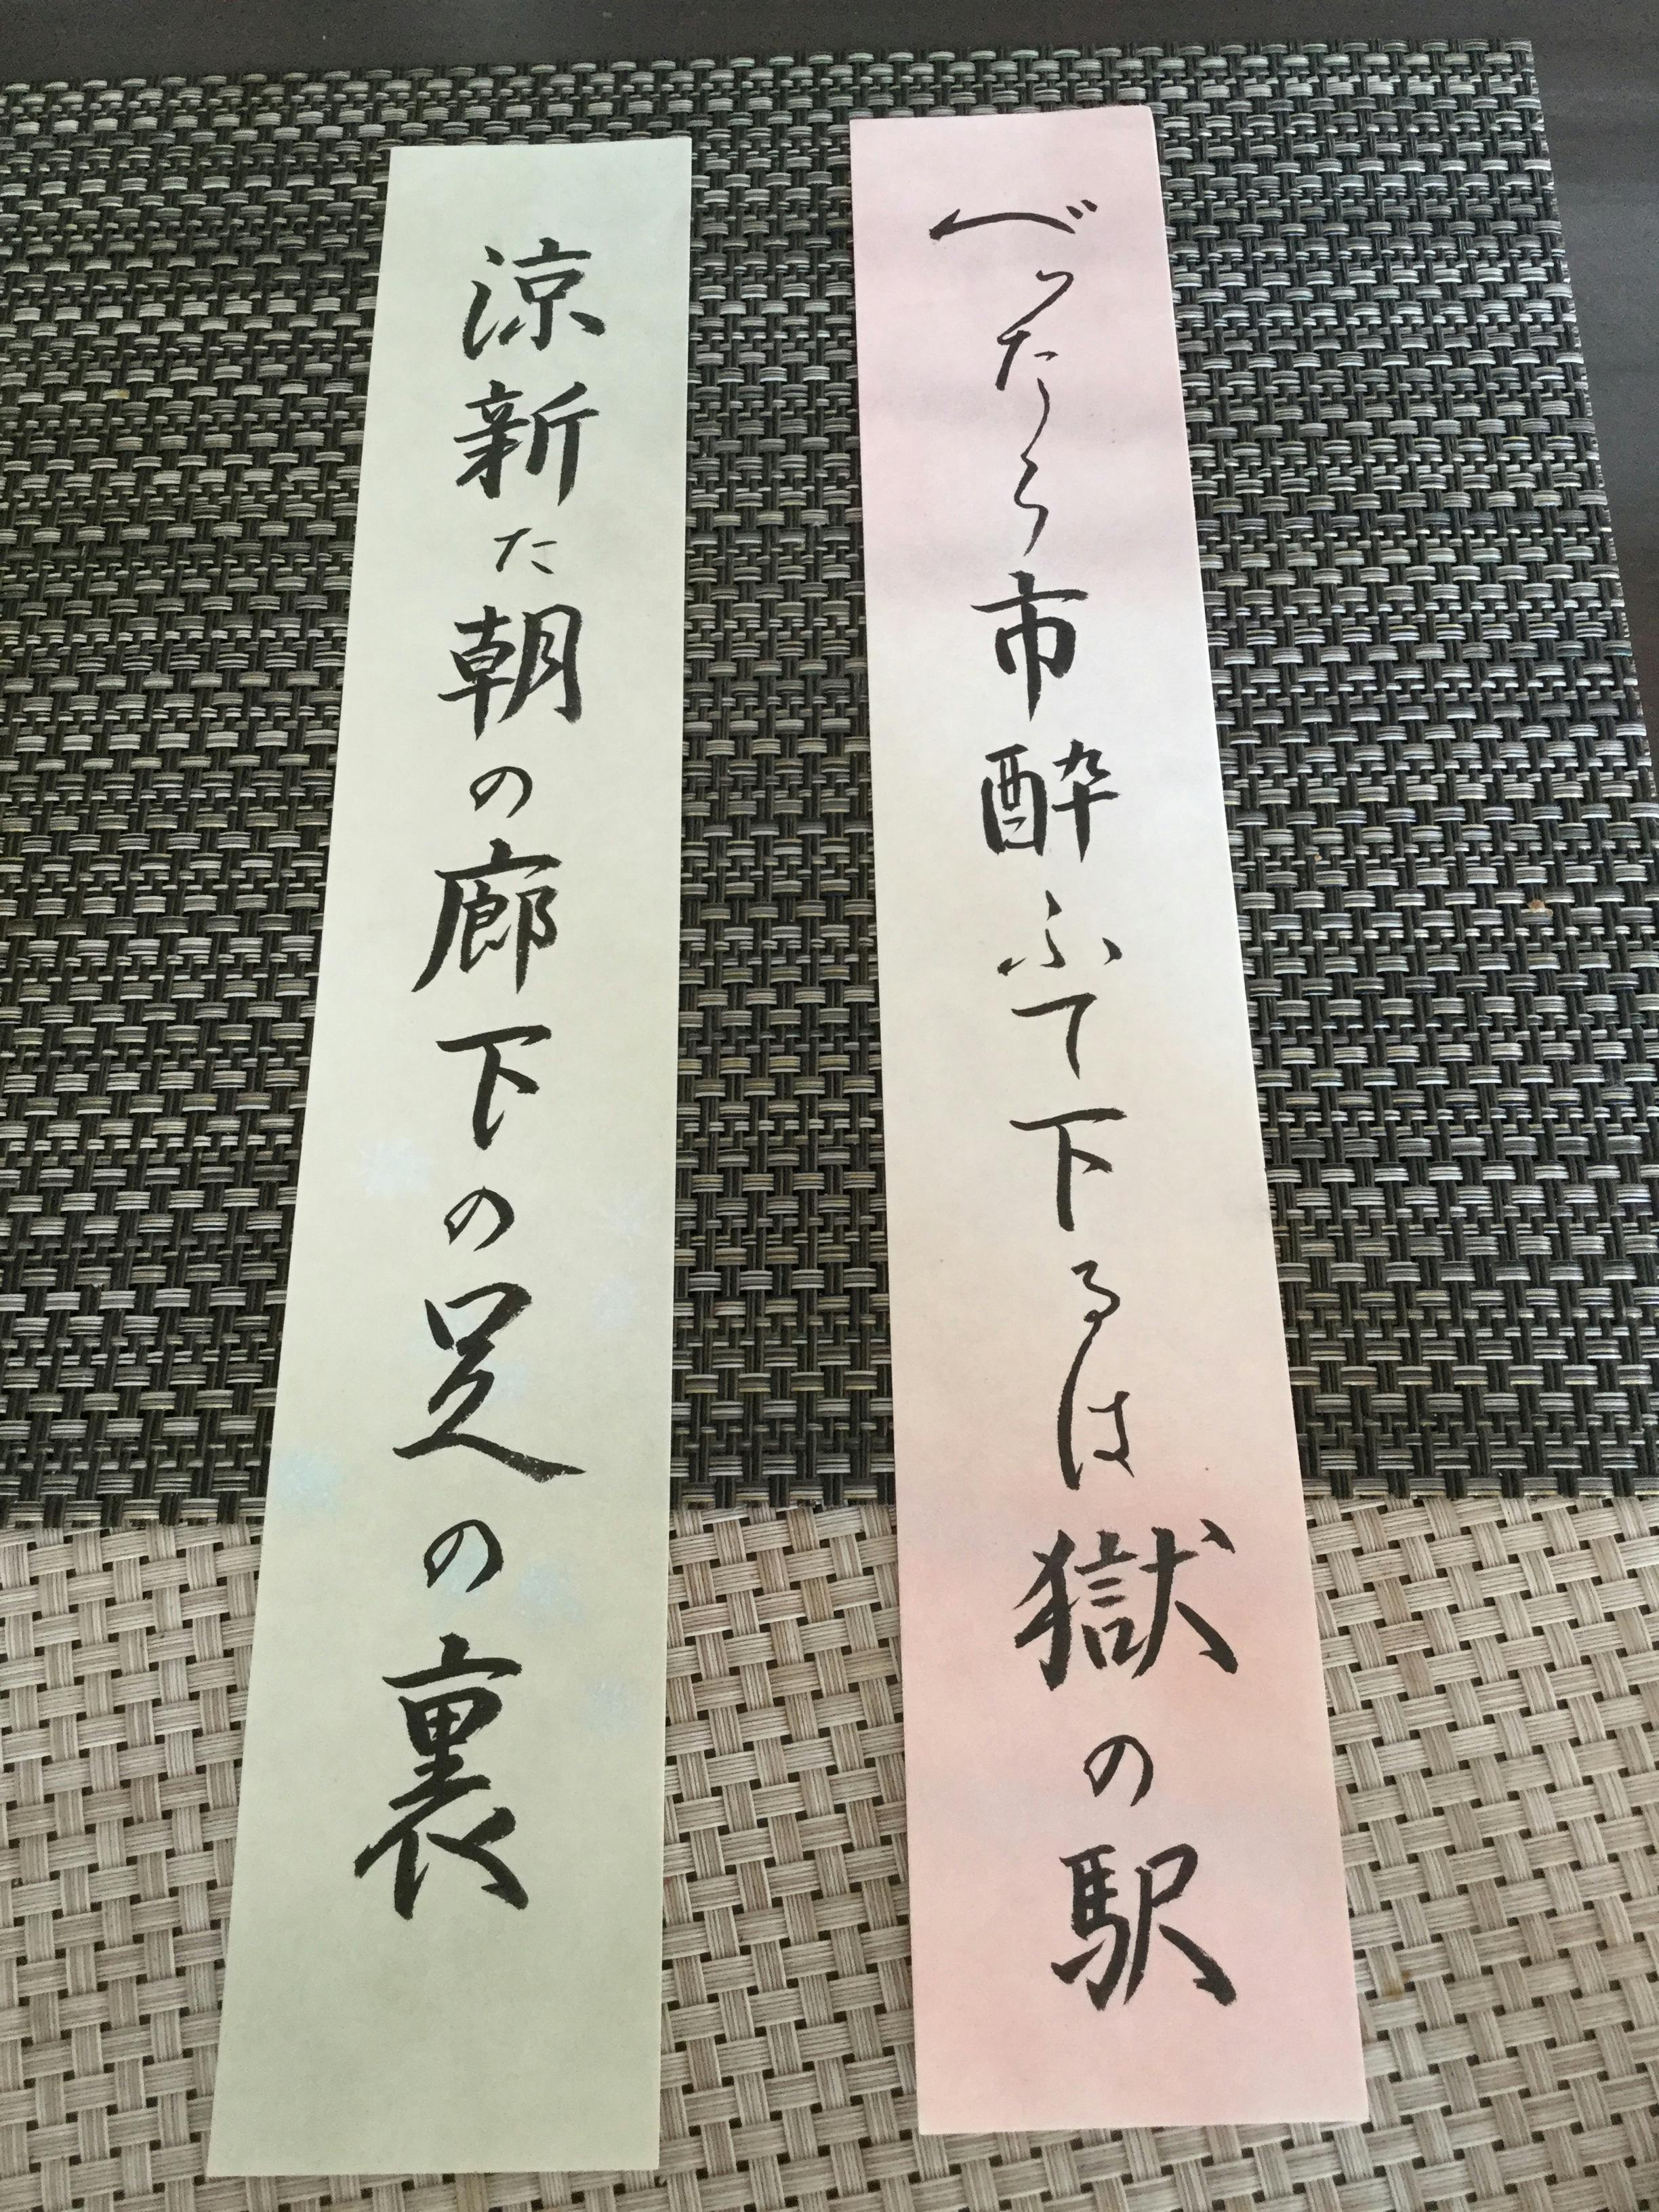 べったら市酔ふて下るは獄の駅
涼新た朝の廊下の足の裏